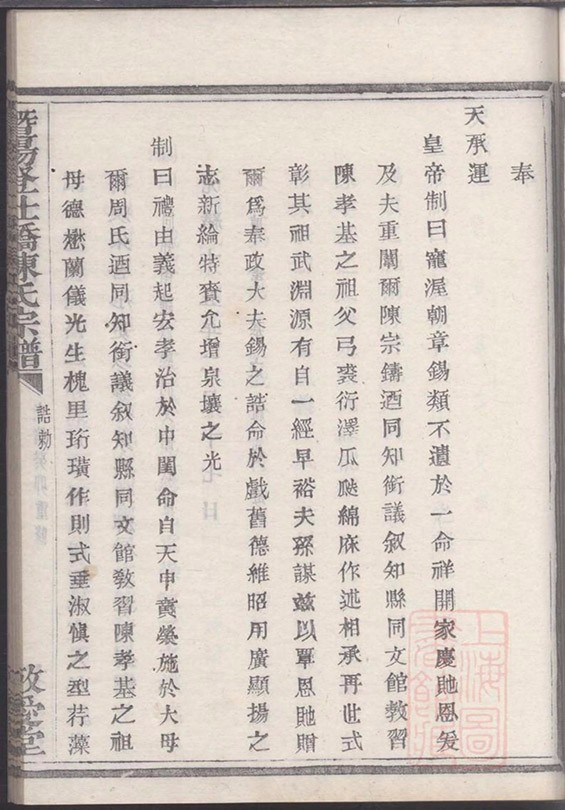 奉
天承運
皇帝制曰寵渥朝章錫類不遺於一命祥開家慶貤恩爰
及夫重闈爾陳宗鑄迺同知銜議叙知縣同文館教習
陳孝基之祖父弓裘衍澤瓜瓞綿庥作述相承再世式
彰其祖武淵源有自一經早裕夫孫謀兹以覃恩貤贈
爾爲奉政大夫錫之誥命於戲舊德維昭用廣顯揚之
志新綸特賁允增泉壤之光
制曰禮由義起宏孝治於中閨命自天申賁榮施於大母
爾周氏迺同知銜議叙知縣同文館教習陳孝基之祖
母德懋蘭儀光生槐里珩璜作則式垂淑愼之型荇藻
暨陽垡仕橋陳氏宗譜
誥勅
敬愛堂
上海圖